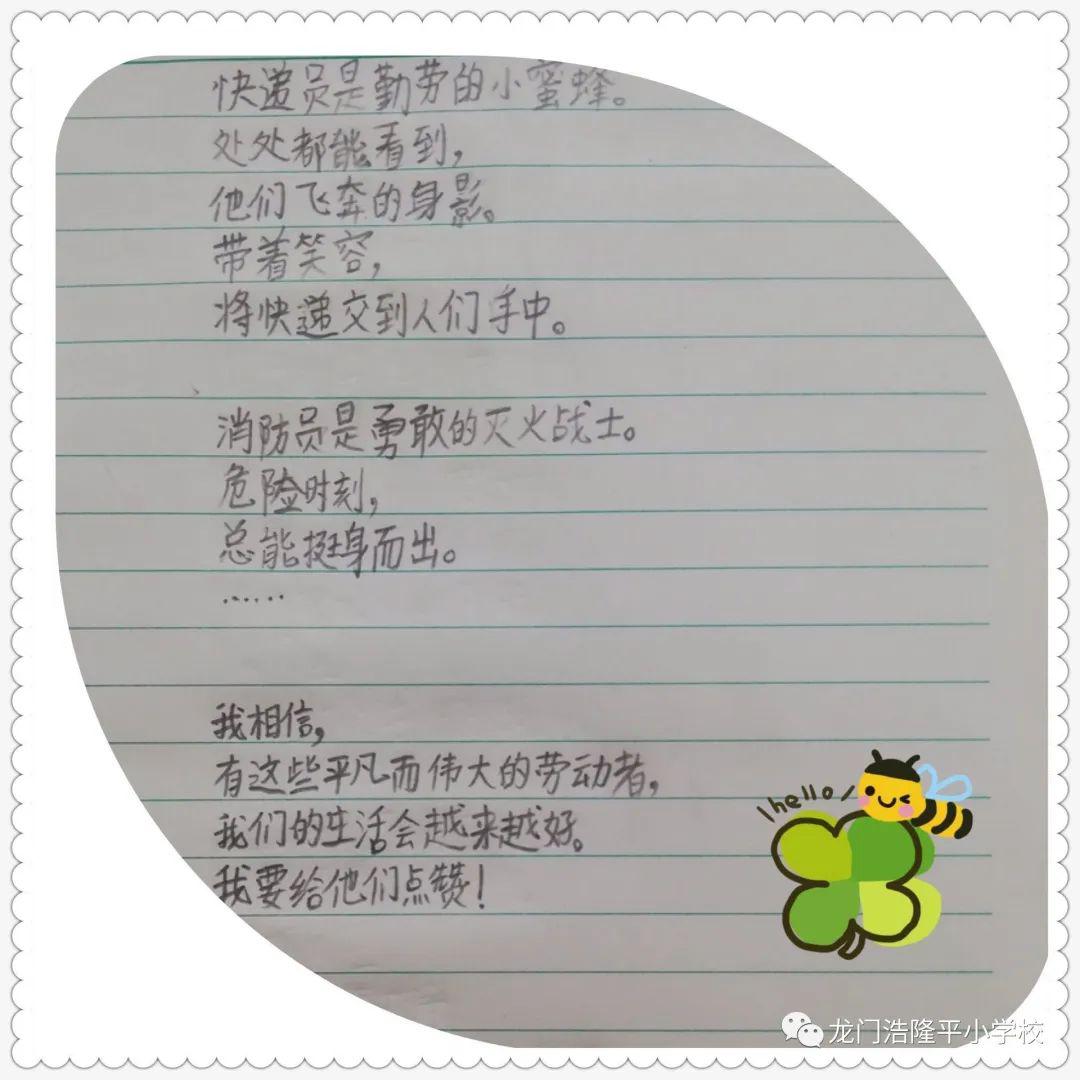 快递员是勤劳的小蜜蜂。
处处都能看到，
他们飞奔的身影。
带着笑容，
将快递交到人们手中。
消防员是勇敢的灭火战士。
危险时刻，
总能挺身而出。
……
我相信，
有这些平凡而伟大的劳动者，
我们的生活会越来越好。
我要给他们点赞！
hello
龙门浩隆平小学校